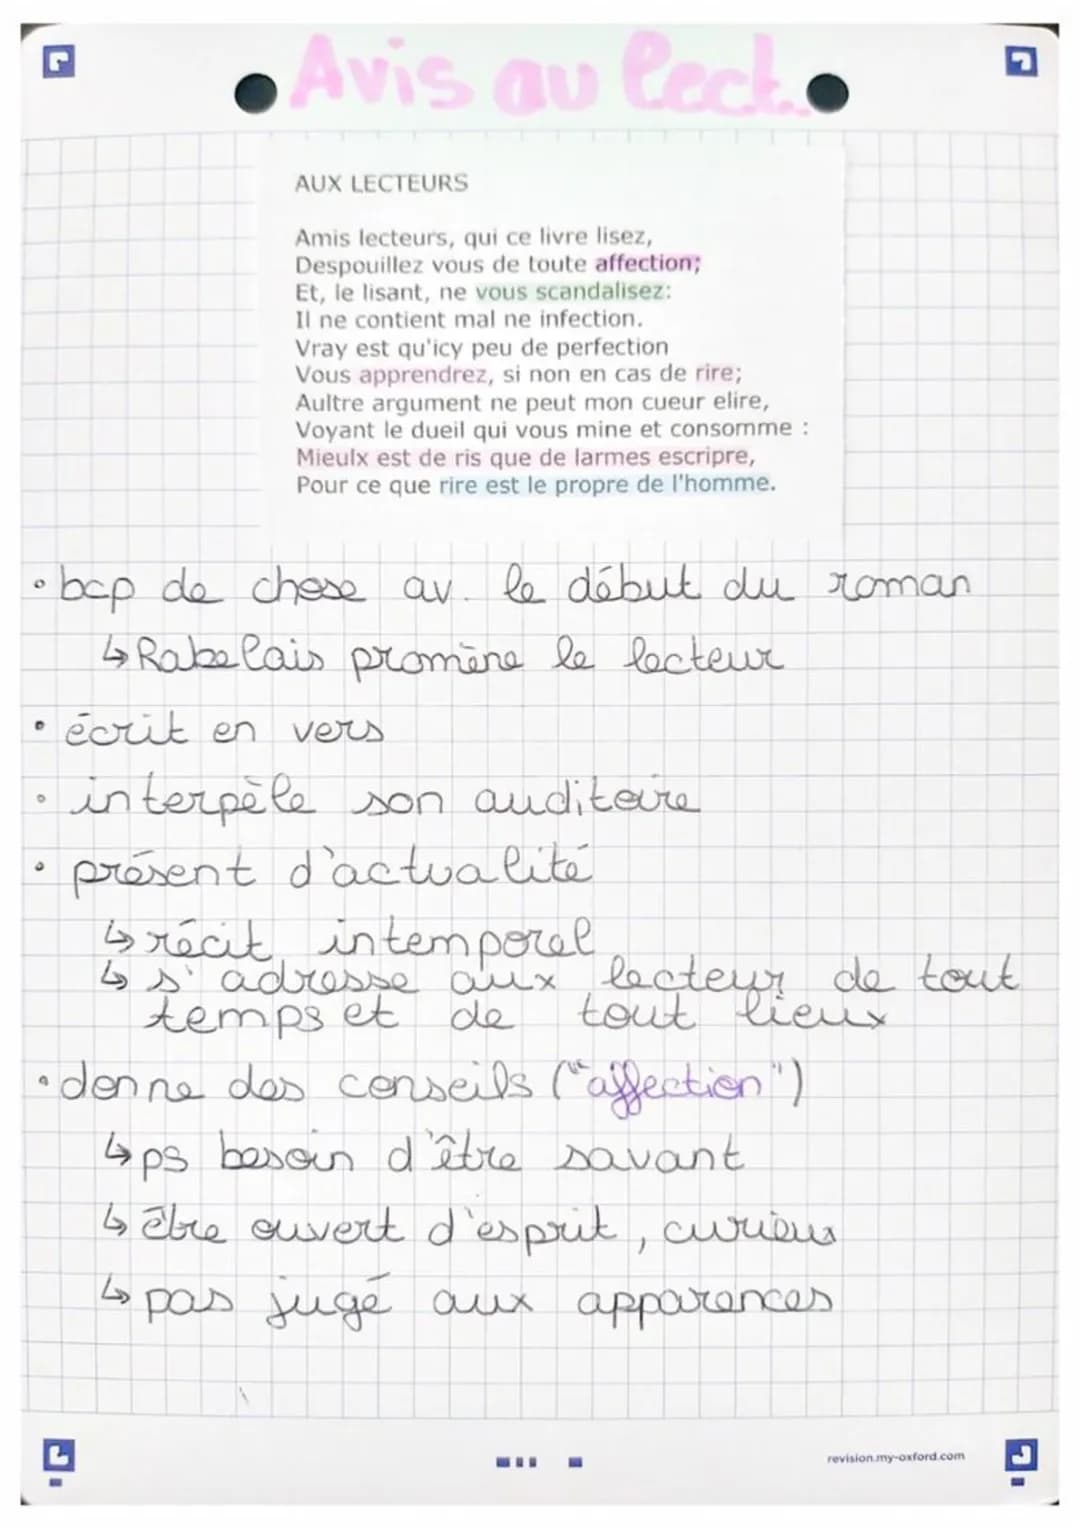 Avis au lect.
AUX LECTEURS
Amis lecteurs, qui ce livre lisez,
Despouillez vous de toute affection;
Et, le lisant, ne vous scandalisez:
Il ne contient mal ne infection.
Vray est qu'icy peu de perfection
Vous apprendrez, si non en cas de rire;
Aultre argument ne peut mon cueur elire,
Voyant le dueil qui vous mine et consomme :
Mieulx est de ris que de larmes escripre,
Pour ce que rire est le propre de l'homme.
• bcp de chose av. le début du roman
↳ Rabelais promène le lecteur
• écrit en vers
• interpèle son auditoire
• présent d'actualité
↳ récit intemporel
↳ s'adresse aux lecteur de tout
temps et de tout lieux
• donne des conseils ("affection")
↳ ps besoin d'être savant
↳ être ouvert d'esprit, curieux
↳ pas jugé aux apparences
revision.my-oxford.com